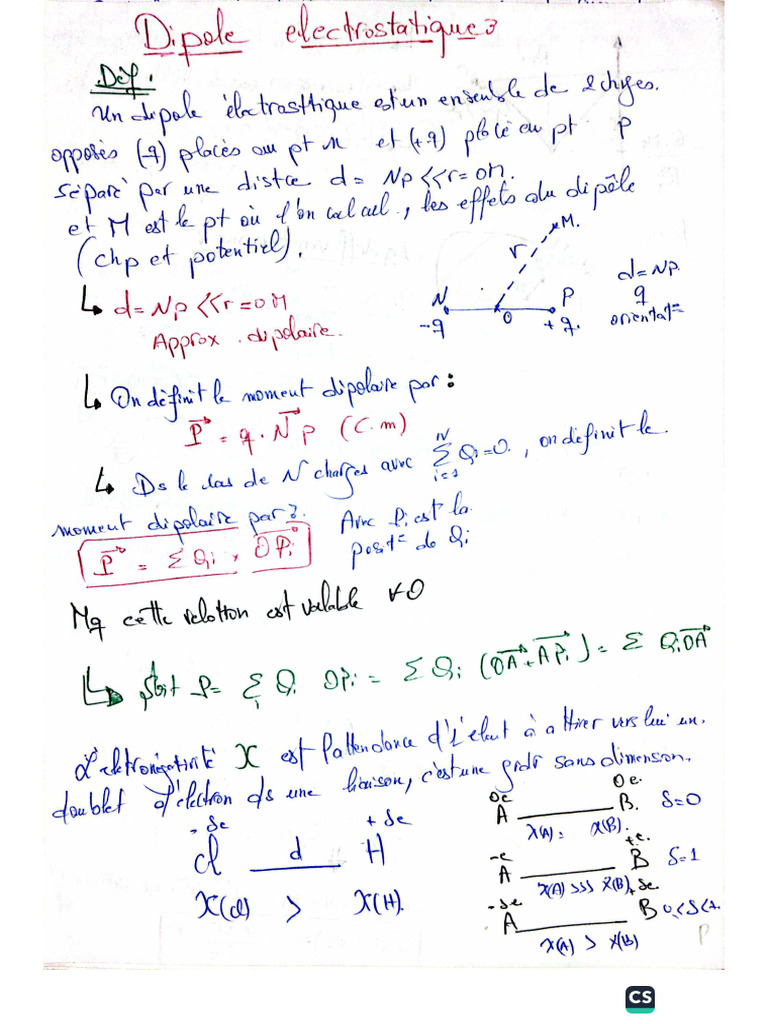 Dipole electrostatique
Def.
Un dipole électrostique est un ensemble de 2 chges.
opposés (-q) placés au pt N et (+q) placé au pt P
séparé par une distce d = NP << r = OM.
et M est le pt où l'on calcul, les effets du dipôle
(chp et potentiel).
M.
r
N P
O
-q +q.
d = NP.
q
orientat=
↳ d = NP << r = OM
Approx. dipolaire.
↳ On définit le moment dipolaire par :
P = q. NP (C.m)
↳ Ds le cas de N charges avec Σ Qi = 0. , on définit le
N
i=1
moment dipolaire par :
P = Σ Qi × OPi
Avec Pi est la
posit= de Qi
Mq cette relation est valable ∀O
↳ soit P = Σ Qi OPi = Σ Qi (OA + APi) = Σ Qi OA
i
L'électronégativité X est l'attendance d'1 élut à attirer vers lui un.
doublet d'électron ds une liaison, c'est une grdr sans dimension.
-δe +δe
Cl d H
X(cl) > X(H).
0e 0e.
A B. δ=0
X(A) = X(B).
-e +e.
A B δ=1
X(A) >>> X(B)
-δe +δe
A B 0<δ<1.
X(A) > X(B)
P
CS